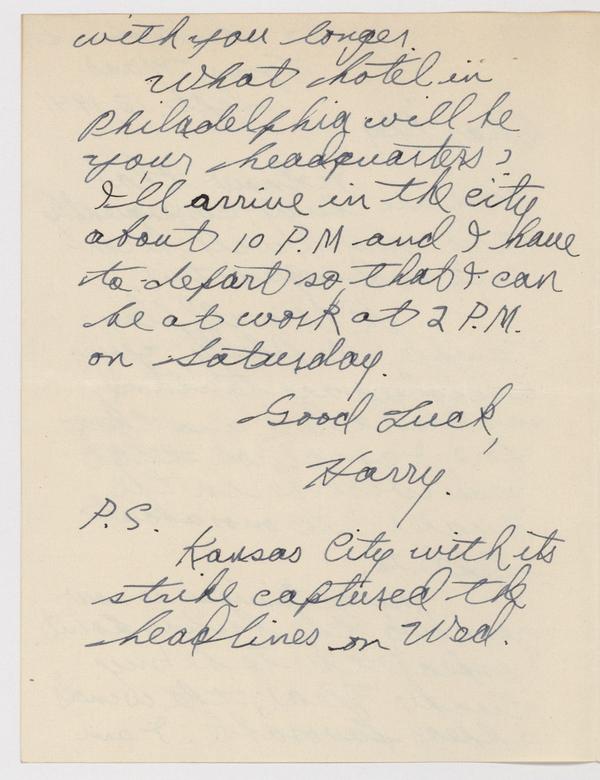 with you longer.
What hotel in
Philadelphia will be
your headquarters?
I'll arrive in the city
about 10 P.M and I have
to depart so that I can
be at work at 2 P.M.
on Saturday.
Good Luck,
Harry.
P.S.
Kansas City with its
strike captured the
headlines on Wed.